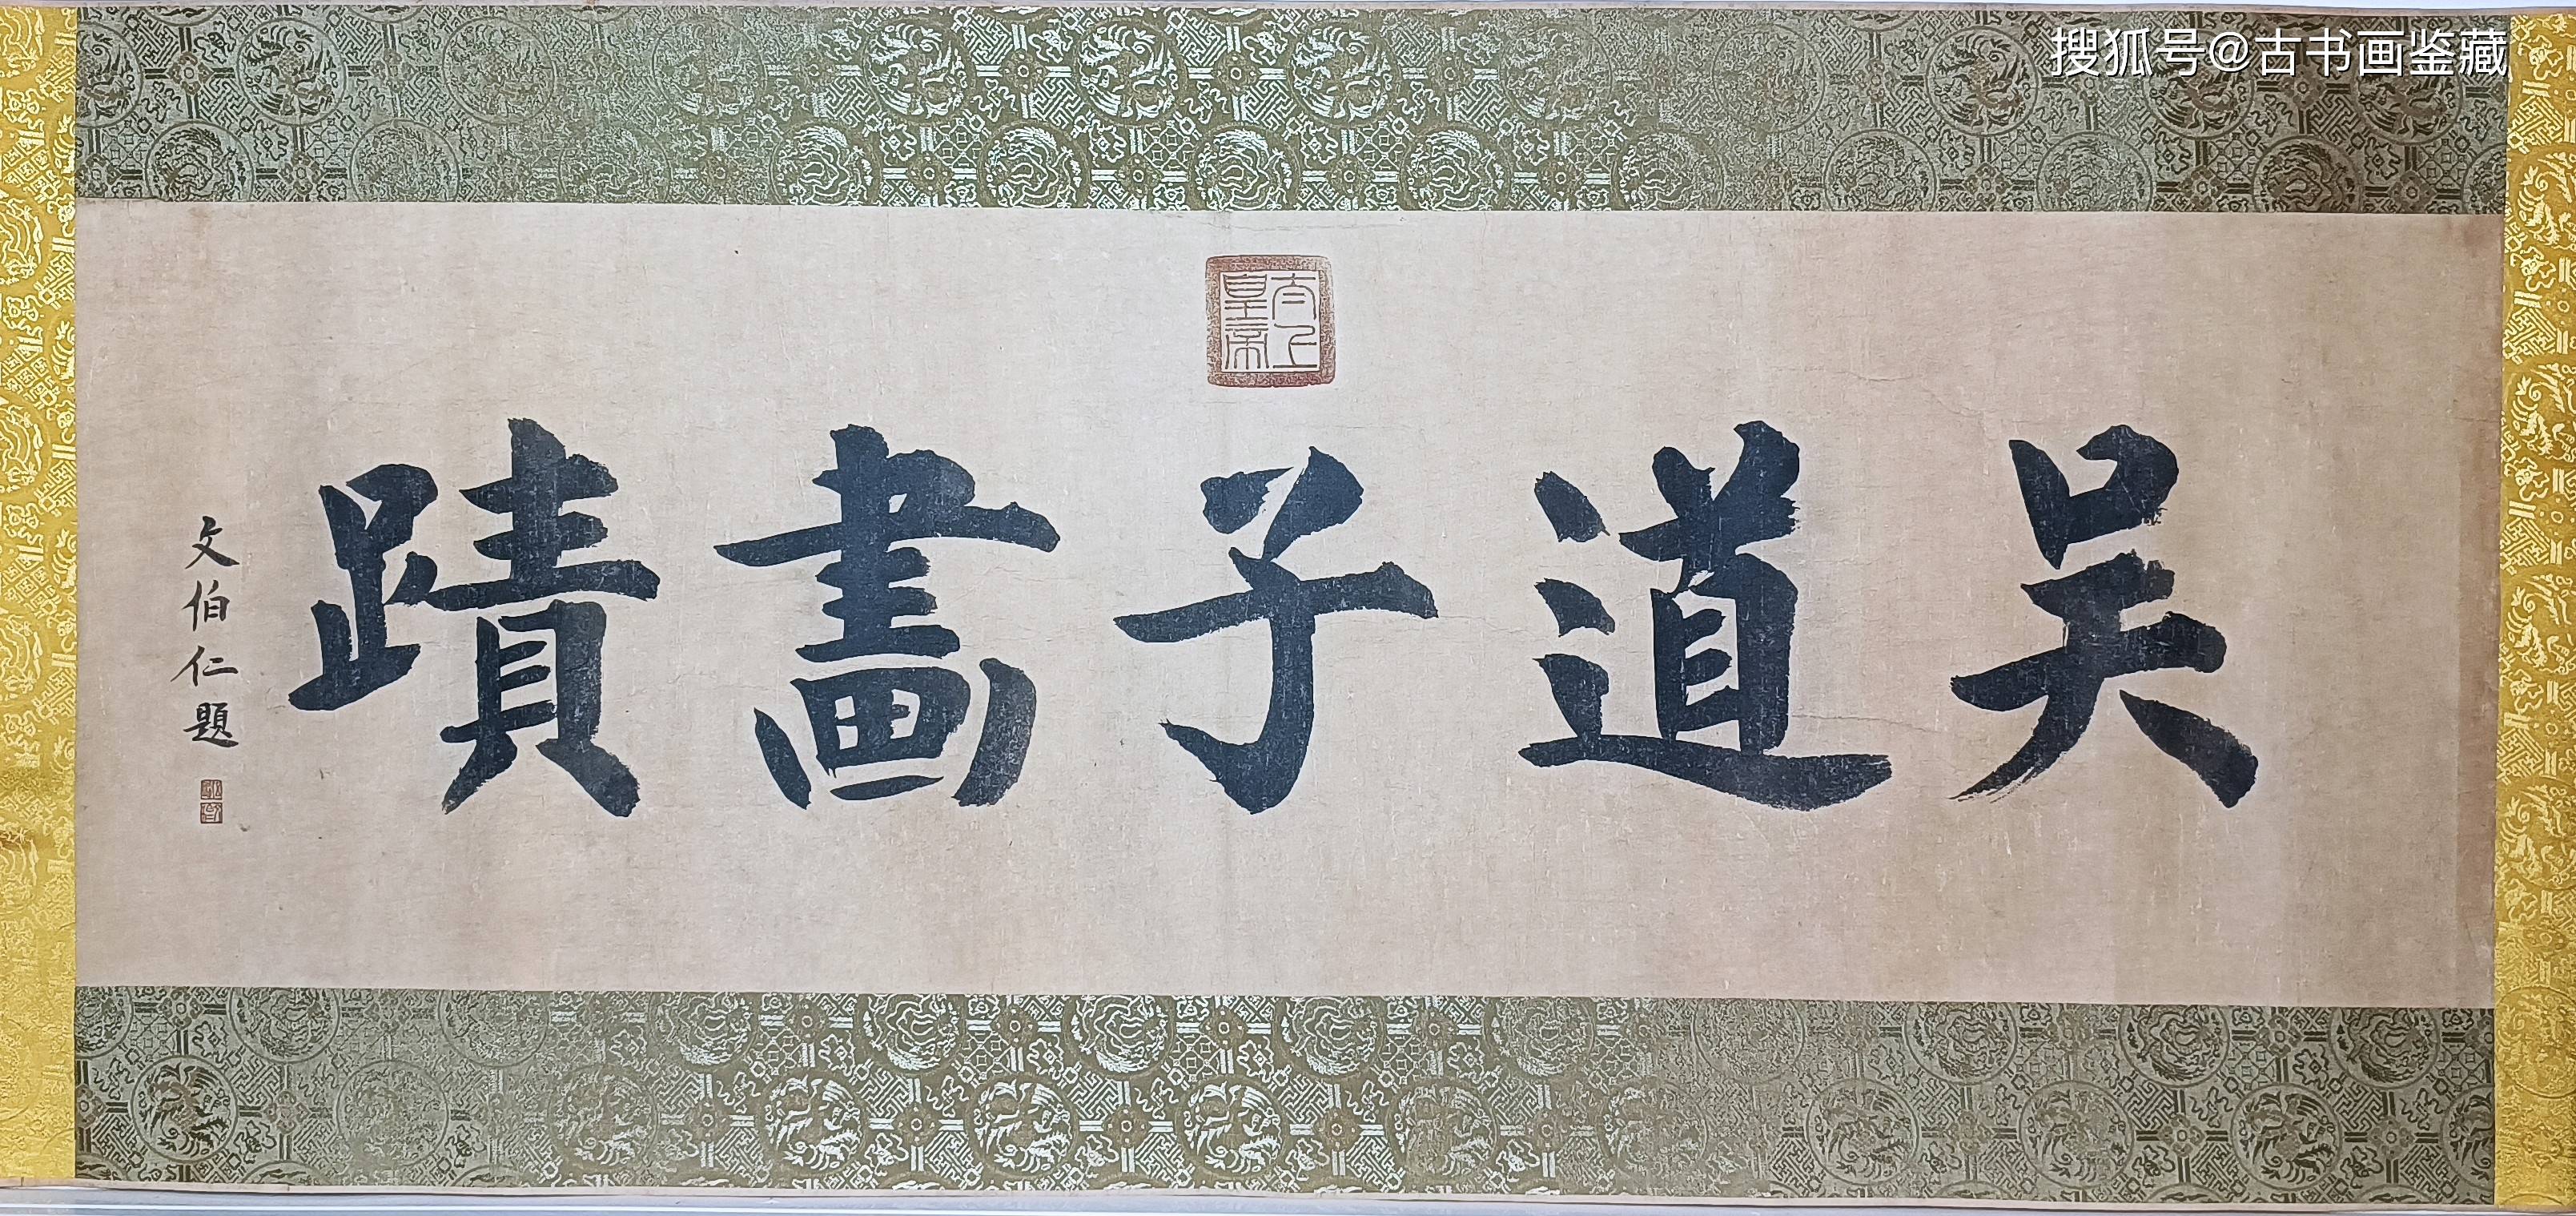 搜狐号@古书画鉴藏
太上
皇帝
吴道子畫蹟
文伯仁題